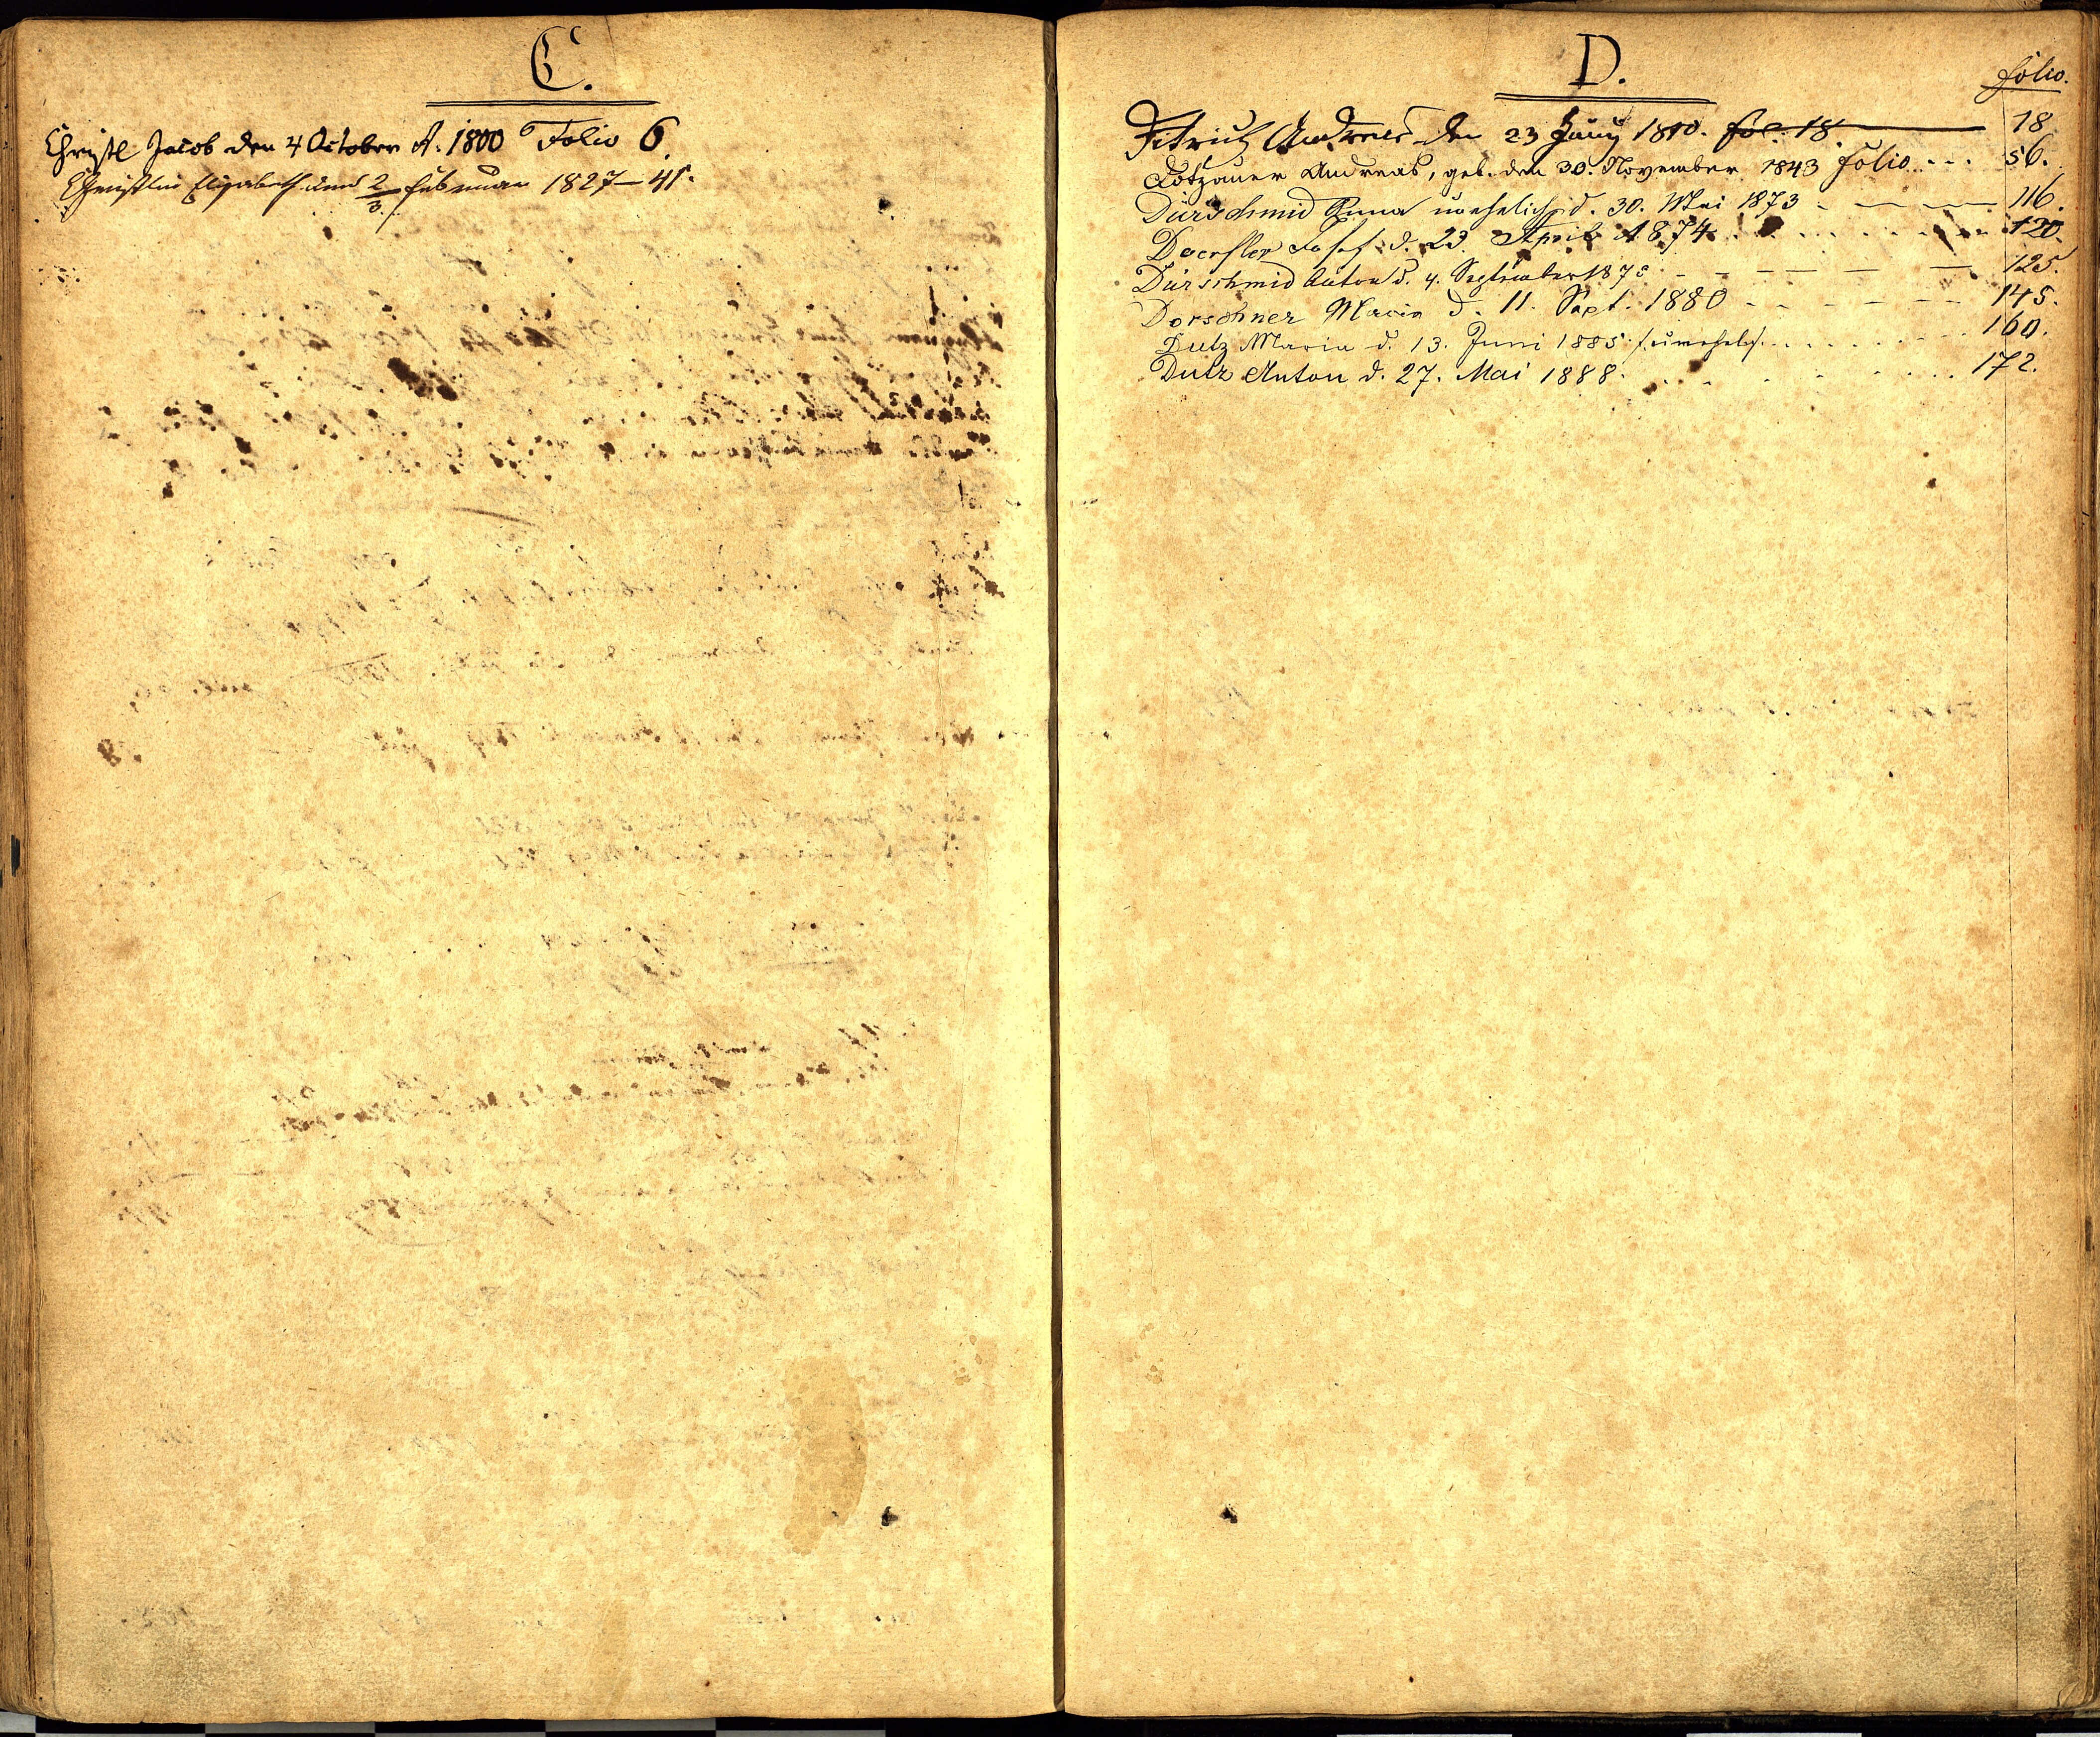 C.
Christl Jacob den 4 October A. 1800 Folio 6.
Christlin Elisabeth den 2/3. Februar 1827 — 41.
D.
Folio.
Ditrich Andreas den 23 Juny 1810. fol. 18. 18
Dotzauer Andreas, geb. den 30. November 1843 Folio... 56.
Dürschmid Anna unehelich d. 30. Mai 1873 116.
Doerfler Josef d. 23. April A. 874 120.
Dürschmid Anton d. 4. September 1875 125.
Dorschner Maria d. 11. Sept. 1880 145.
Dutz Maria d. 13. Juni 1885 /: unehel :/ 160.
Dutz Anton d. 27. Mai 1888. 172.